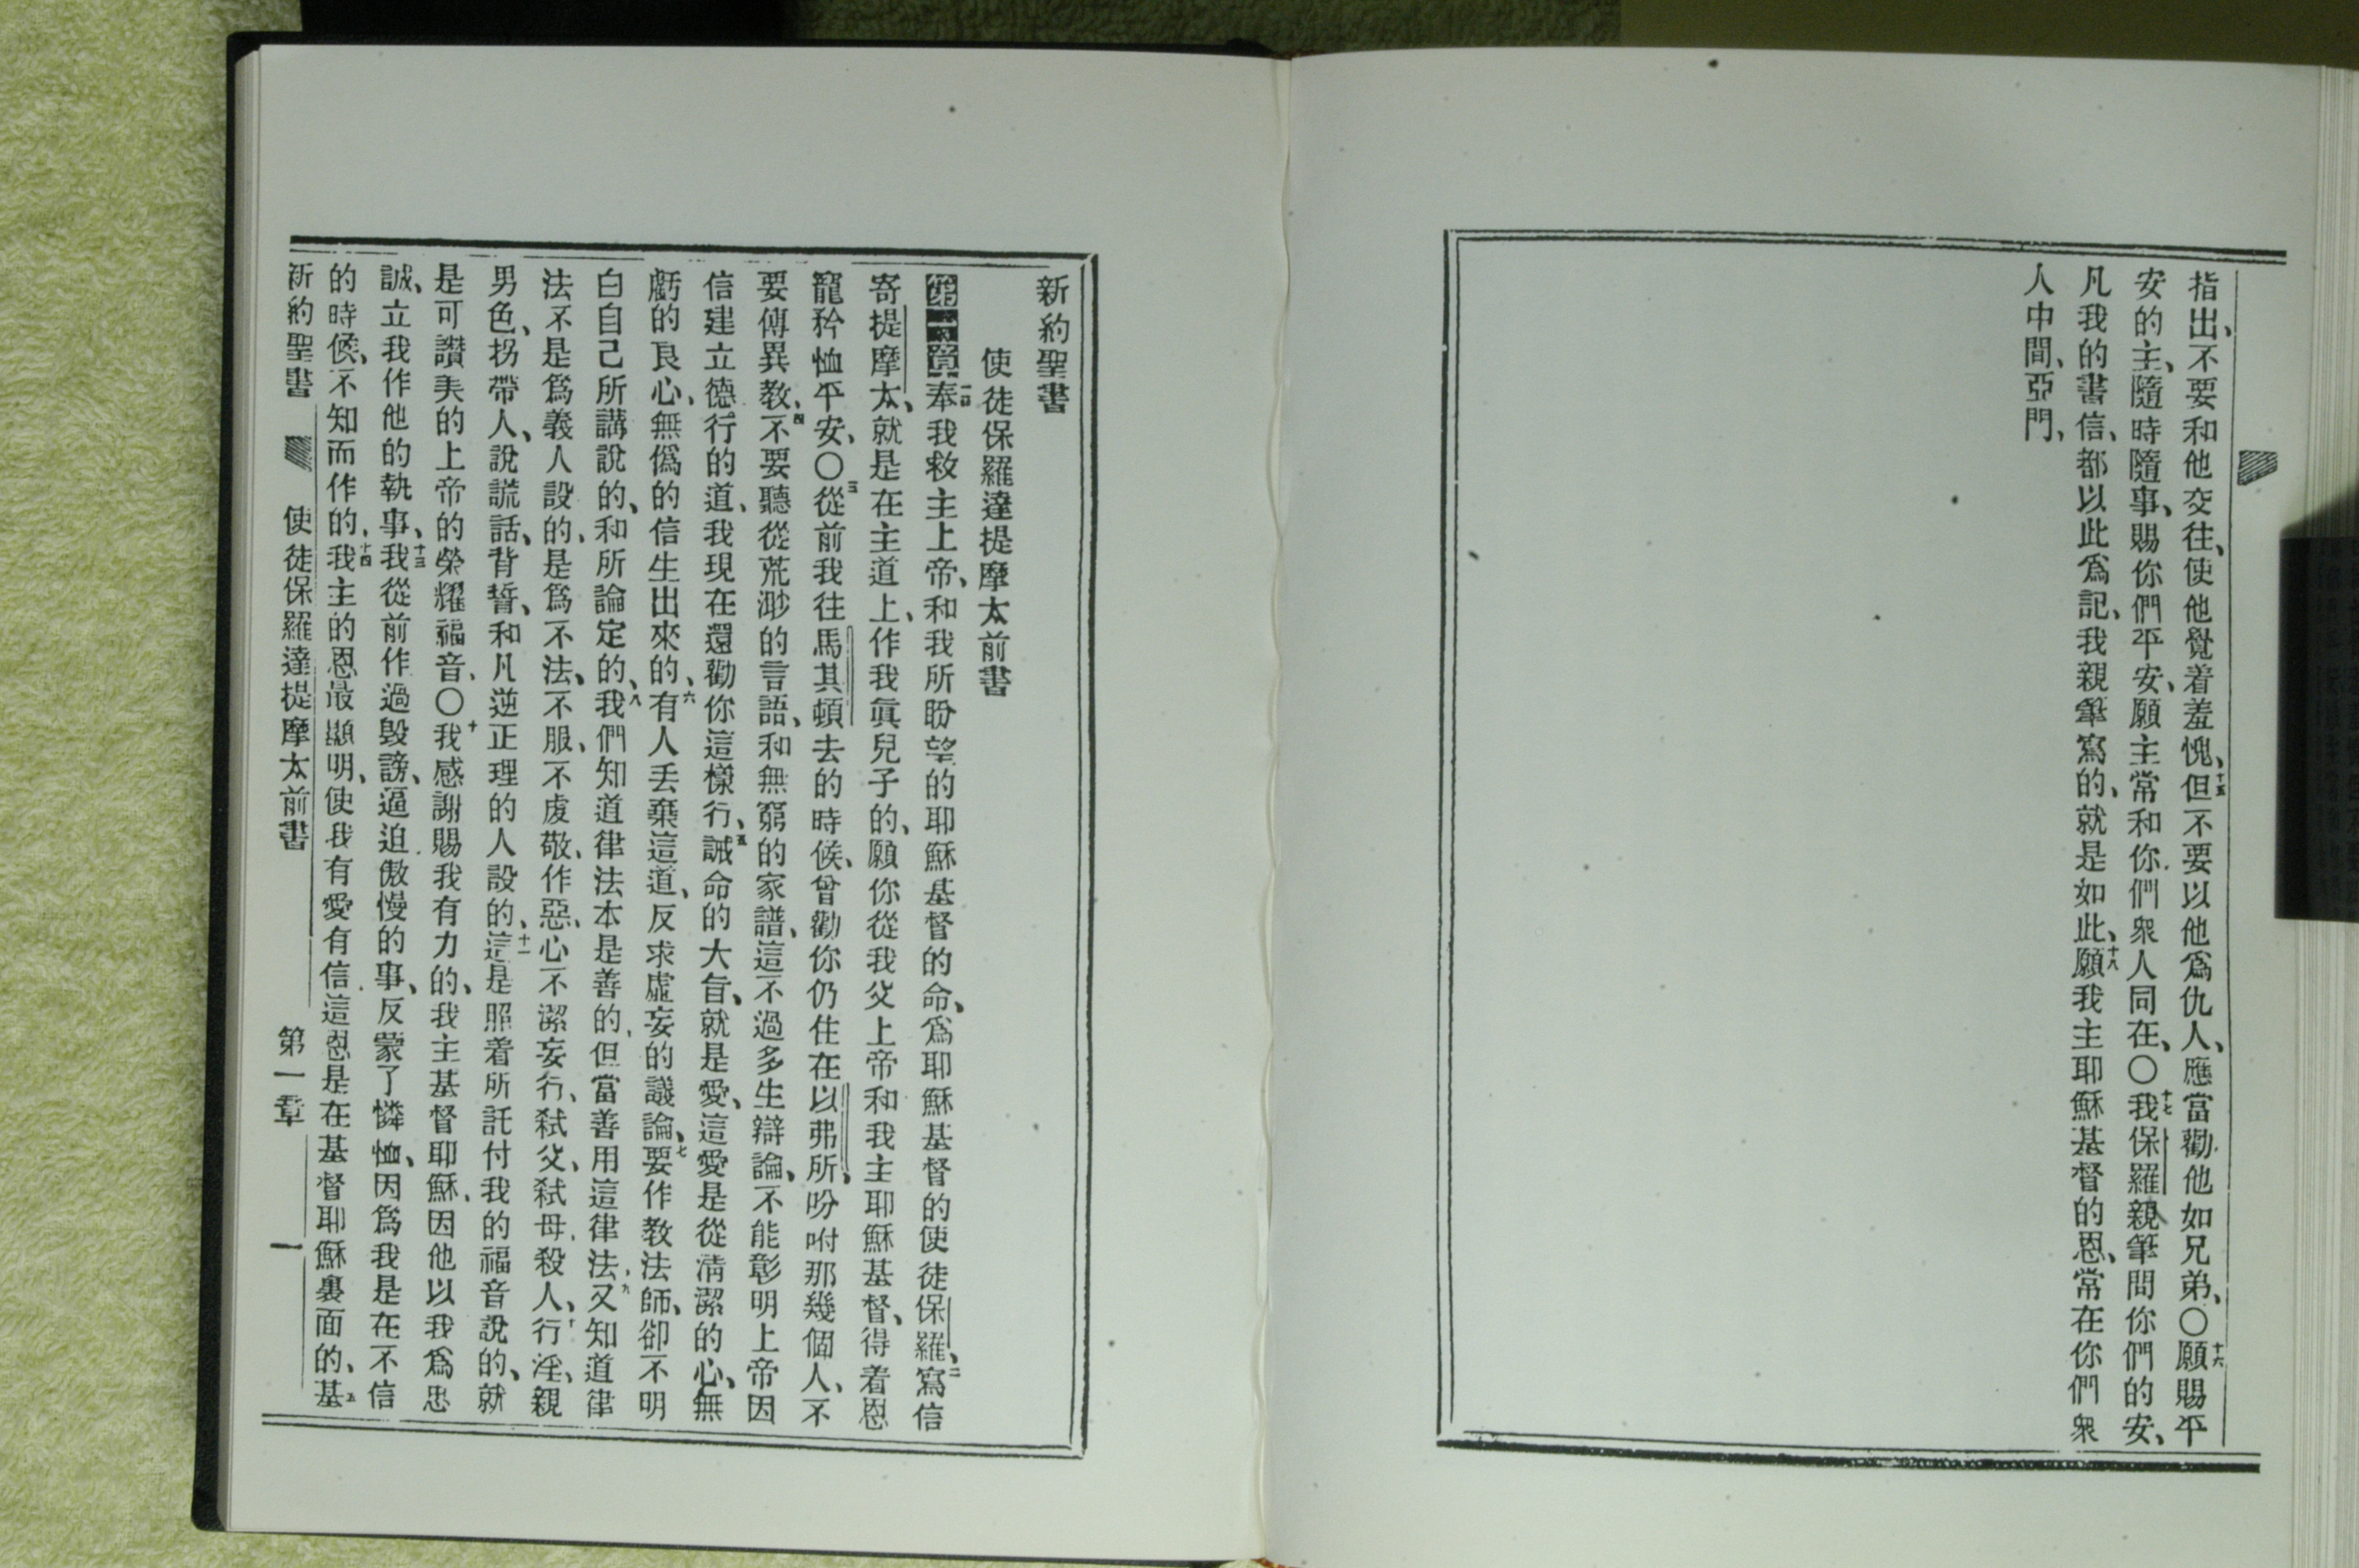 指出、不要和他交往、使他覺着羞愧、十五但不要以他爲仇人、應當勸他如兄弟、〇十六願賜平
安的主、隨時隨事、賜你們平安、願主常和你們衆人同在、〇十七我保羅親筆問你們的安、
凡我的書信、都以此爲記、我親筆寫的、就是如此、十八願我主耶穌基督的恩、常在你們衆
人中間、亞門、
新約聖書
使徒保羅達提摩太前書
第一章一奉我救主上帝、和我所盼望的耶穌基督的命、爲耶穌基督的使徒保羅、二寫信
寄提摩太、就是在主道上、作我眞兒子的、願你從我父上帝和我主耶穌基督、得着恩
寵矜恤平安、〇三從前我往馬其頓去的時候、曾勸你仍住在以弗所、吩咐那幾個人、不
要傳異教、四不要聽從荒渺的言語、和無窮的家譜、這不過多生辯論、不能彰明上帝因
信建立德行的道、我現在還勸你這樣行、五誡命的大旨、就是愛、這愛是從淸潔的心、無
虧的良心、無僞的信生出來的、六有人丢棄這道、反求虛妄的議論、七要作教法師、卻不明
白自己所講說的、和所論定的、八我們知道律法本是善的、但當善用這律法、九又知道律
法不是爲義人設的、是爲不法、不服、不虔敬、作惡、心不潔妄行、弒父、弒母、殺人、十行淫、親
男色、拐帶人、說謊話、背誓、和凡逆正理的人設的、十一這是照着所託付我的福音說的、就
是可讚美的上帝的榮耀福音、〇十我感謝賜我有力的、我主基督耶穌、因他以我爲忠
誠、立我作他的執事、十三我從前作過毀謗、逼迫傲慢的事、反蒙了憐恤、因爲我是在不信
的時候、不知而作的、十四我主的恩最顯明、使我有愛有信這恩是在基督耶穌裏面的、五基
新約聖書 使徒保羅達提摩太前書 第一章 一